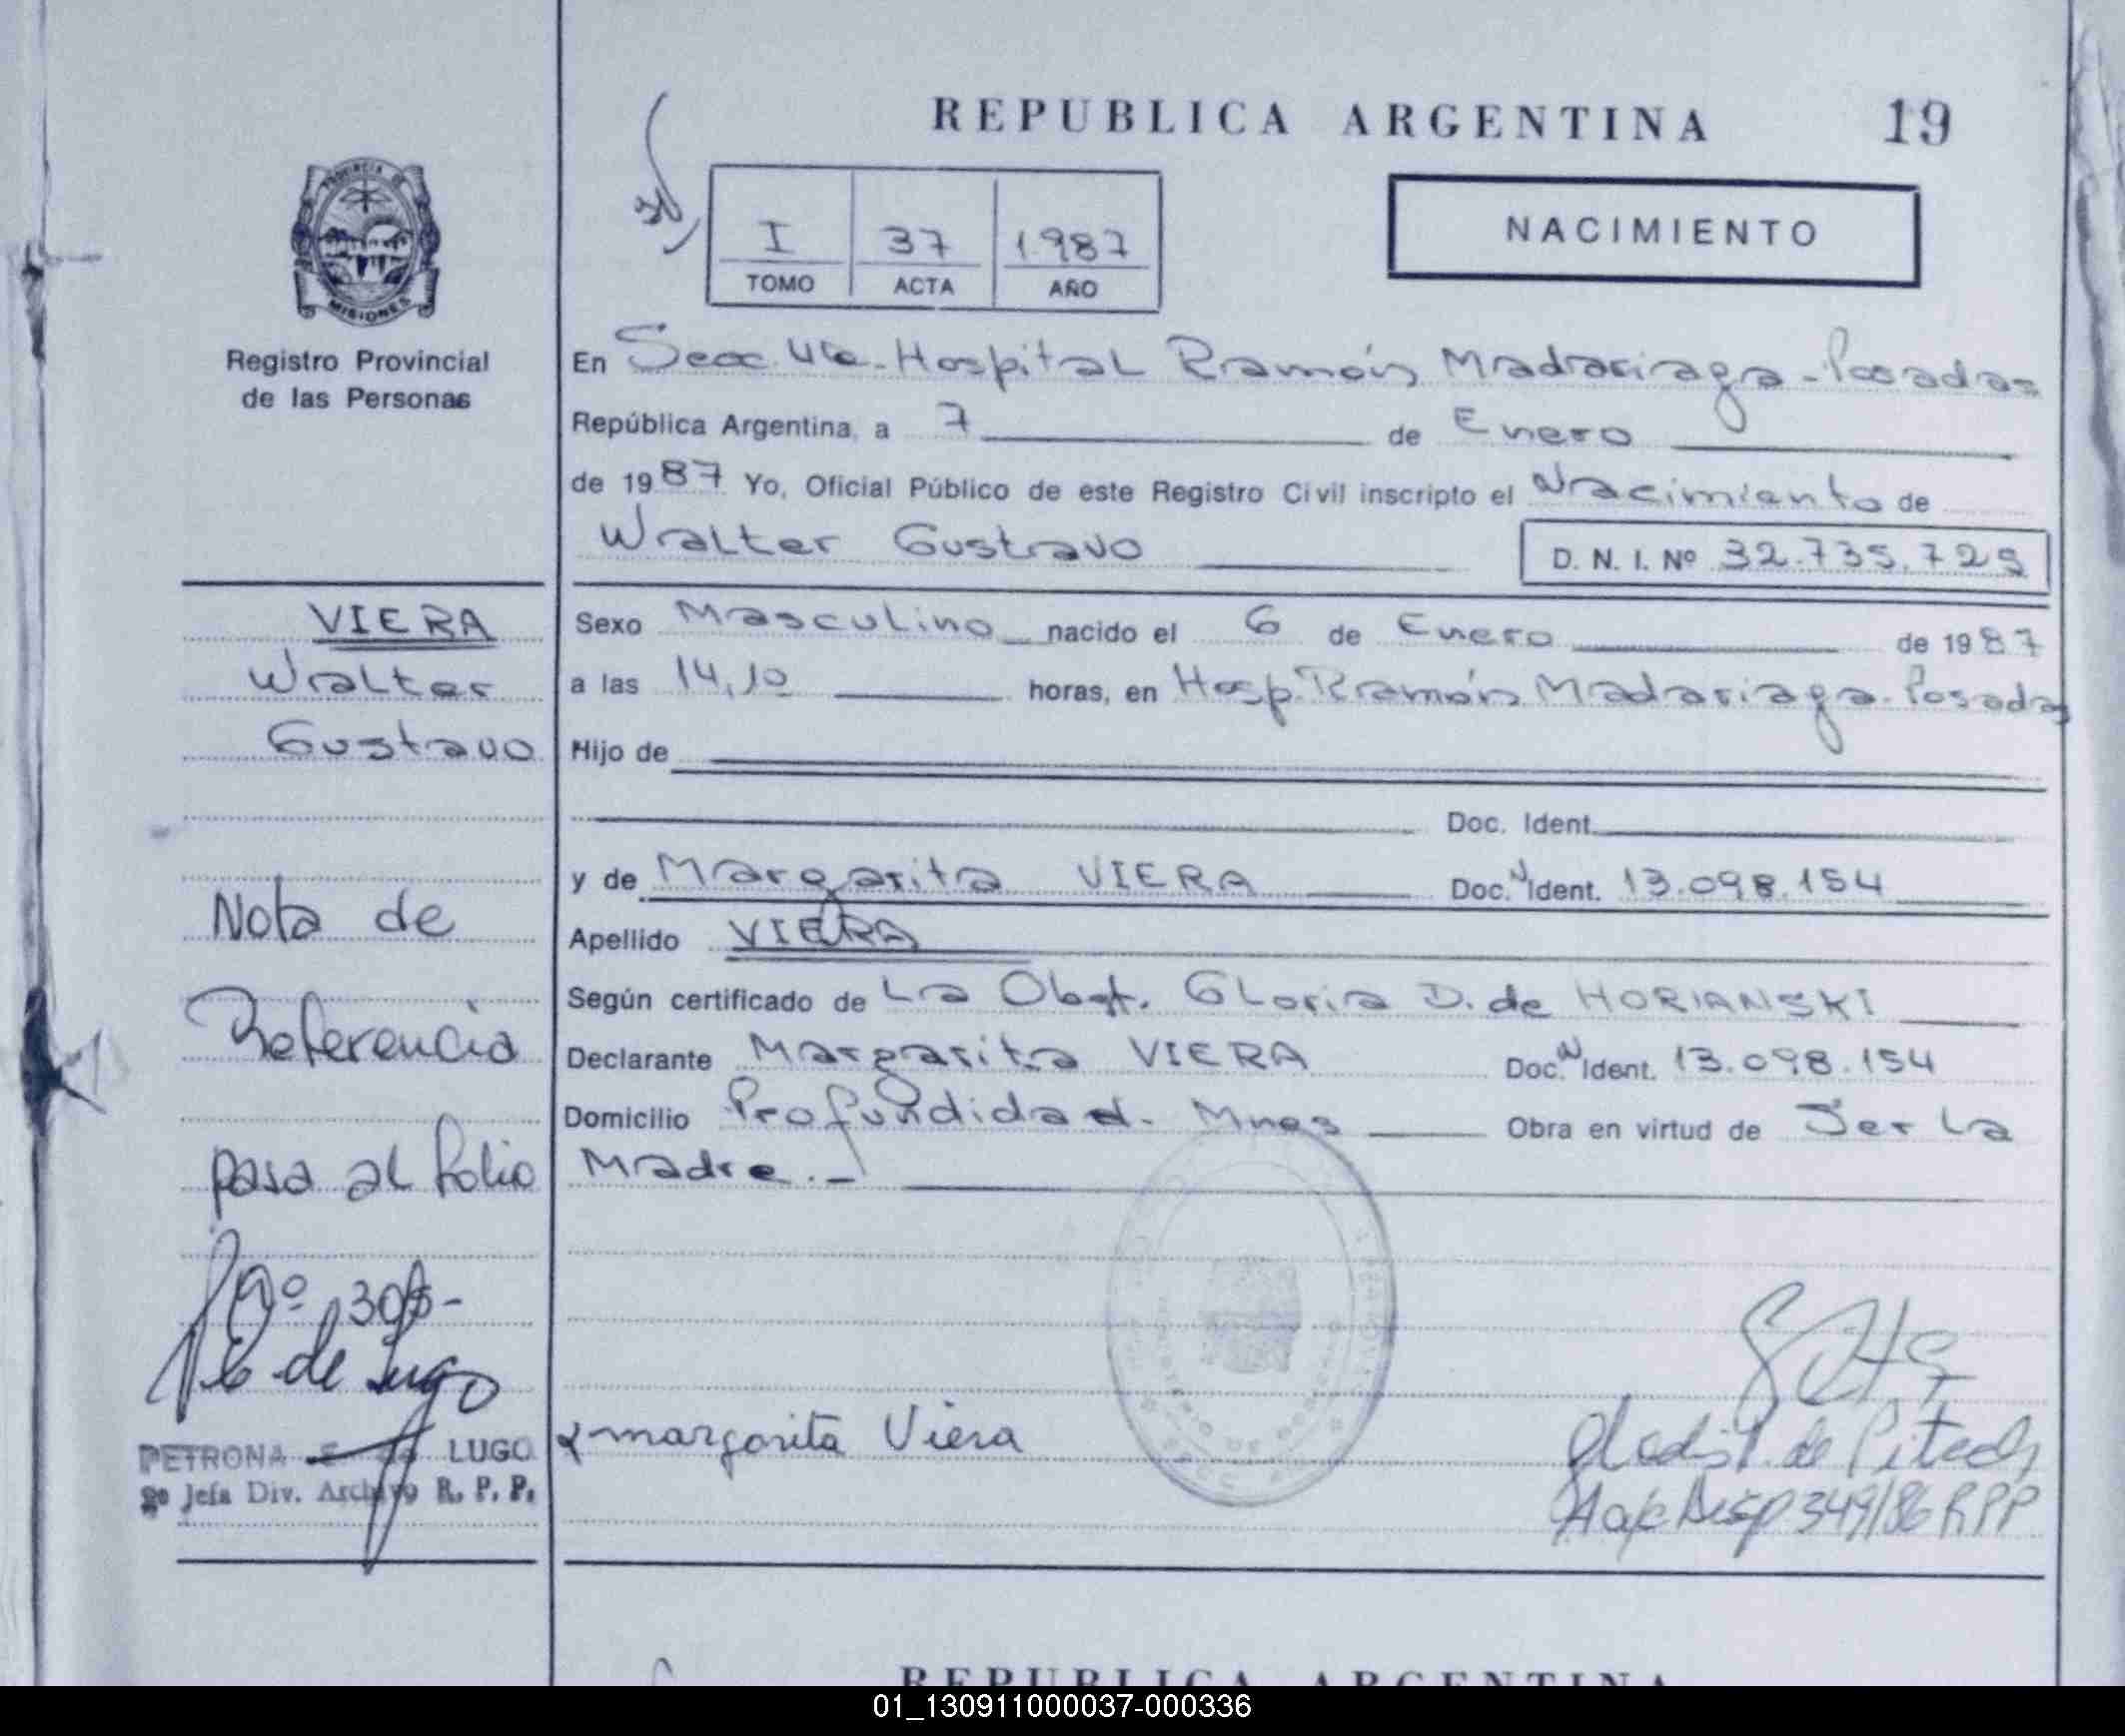 REPUBLICA ARGENTINA
19
PROVINCIA DE
MISIONES
Registro Provincial
de las Personas
I 37 1987
TOMO ACTA AÑO
NACIMIENTO
En Secc. 4ta. Hospital Ramón Madariaga - Posadas
República Argentina, a 7 de Enero
de 1987 Yo, Oficial Público de este Registro Civil inscripto el Nacimiento de
Walter Gustavo D. N. I. Nº 32.735.725
VIERA
Walter
Gustavo
Sexo Masculino nacido el 6 de Enero de 1987
a las 14,10 horas, en Hosp. Ramón Madariaga - Posadas
Hijo de
Doc. Ident.
y de Margarita VIERA Doc. N Ident. 13.098.154
Apellido VIERA
Según certificado de La Obst. Gloria D. de HORIANSKI
Declarante Margarita VIERA Doc. N Ident. 13.098.154
Domicilio Profundidad - Mnes Obra en virtud de Ser La
Madre.-
Nota de
Referencia
pasa al folio
Nº
de Lugo
PETRONA LUGO
Jefa Div. Archivo R. P. P.
margarita Viera
de
349/86 RPP
REPUBLICA ARGENTINA
01_130911000037-000336